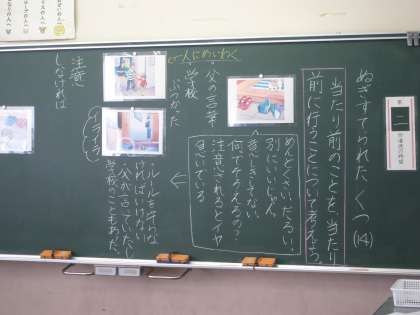 ぬぎすてられた くつ (14)
当たり前のことを、当たり
前に行うことについて考えよう。
めんどくさい、だるい。
別にいいじゃん
急いでるし
注意されるとイヤ
急いでいる
父の言葉
学校
ぶつかった
人にめいわく
イライラ
・ルールを守らな
ければいけない
・父が言っていたし
学校のこともあった。
注意
しなければ
第
二